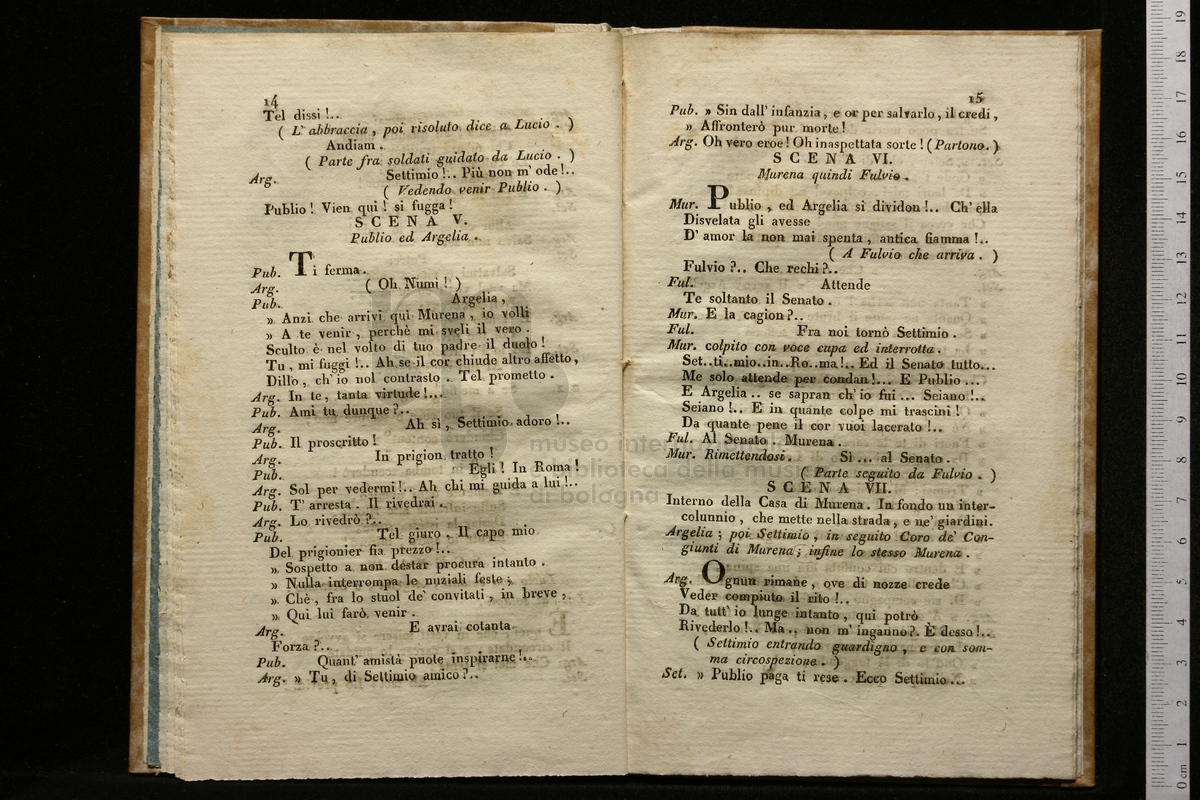 14
Tel dissi!..
( L' abbraccia, poi risoluto dice a Lucio. )
Andiam.
( Parte fra soldati guidato da Lucio. )
Arg. Settimio!.. Più non m' ode!..
( Vedendo venir Publio. )
Publio! Vien qui! si fugga!
SCENA V.
Publio ed Argelia.
Pub. Ti ferma.
Arg. ( Oh Numi! )
Pub. Argelia,
» Anzi che arrivi qui Murena, io volli
» A te venir, perchè mi sveli il vero.
Sculto è nel volto di tuo padre il duolo!
Tu, mi fuggi!.. Ah se il cor chiude altro affetto,
Dillo, ch' io nol contrasto. Tel prometto.
Arg. In te, tanta virtude!...
Pub. Ami tu dunque?..
Arg. Ah sì, Settimio adoro!..
Pub. Il proscritto!
Arg. In prigion tratto!
Pub. Egli! In Roma!
Arg. Sol per vedermi!.. Ah chi mi guida a lui!..
Pub. T' arresta. Il rivedrai.
Arg. Lo rivedrò?..
Pub. Tel giuro. Il capo mio
Del prigionier fia prezzo!..
» Sospetto a non destar procura intanto.
» Nulla interrompa le nuziali feste;
» Chè, fra lo stuol de' convitati, in breve,
» Qui lui farò venir.
Arg. E avrai cotanta
Forza?..
Pub. Quant' amistà puote inspirarne!..
Arg. » Tu, di Settimio amico?..
15
Pub. » Sin dall' infanzia, e or per salvarlo, il credi,
» Affronterò pur morte!
Arg. Oh vero eroe! Oh inaspettata sorte! ( Partono. )
SCENA VI.
Murena quindi Fulvio.
Mur. Publio, ed Argelia si dividon!.. Ch' ella
Disvelata gli avesse
D' amor la non mai spenta, antica fiamma!..
( A Fulvio che arriva. )
Fulvio?.. Che rechi?..
Ful. Attende
Te soltanto il Senato.
Mur. E la cagion?..
Ful. Fra noi tornò Settimio.
Mur. colpito con voce cupa ed interrotta.
Set..ti..mio..in..Ro..ma!.. Ed il Senato tutto...
Me solo attende per condan!... E Publio...
E Argelia.. se sapran ch' io fui... Seiano!..
Seiano!.. E in quante colpe mi trascini!
Da quante pene il cor vuoi lacerato!..
Ful. Al Senato. Murena.
Mur. Rimettendosi. Sì... al Senato.
( Parte seguito da Fulvio. )
SCENA VII.
Interno della Casa di Murena. In fondo un inter-
colunnio, che mette nella strada, e ne' giardini.
Argelia; poi Settimio, in seguito Coro de' Con-
giunti di Murena; infine lo stesso Murena.
Arg. Ognun rimane, ove di nozze crede
Veder compiuto il rito!..
Da tutt' io lunge intanto, qui potrò
Rivederlo!.. Ma.. non m' inganno?. È desso!..
( Settimio entrando guardigno, e con som-
ma circospezione. )
Set. » Publio paga ti rese. Ecco Settimio...
museo inter
biblioteca della musi
di bologna